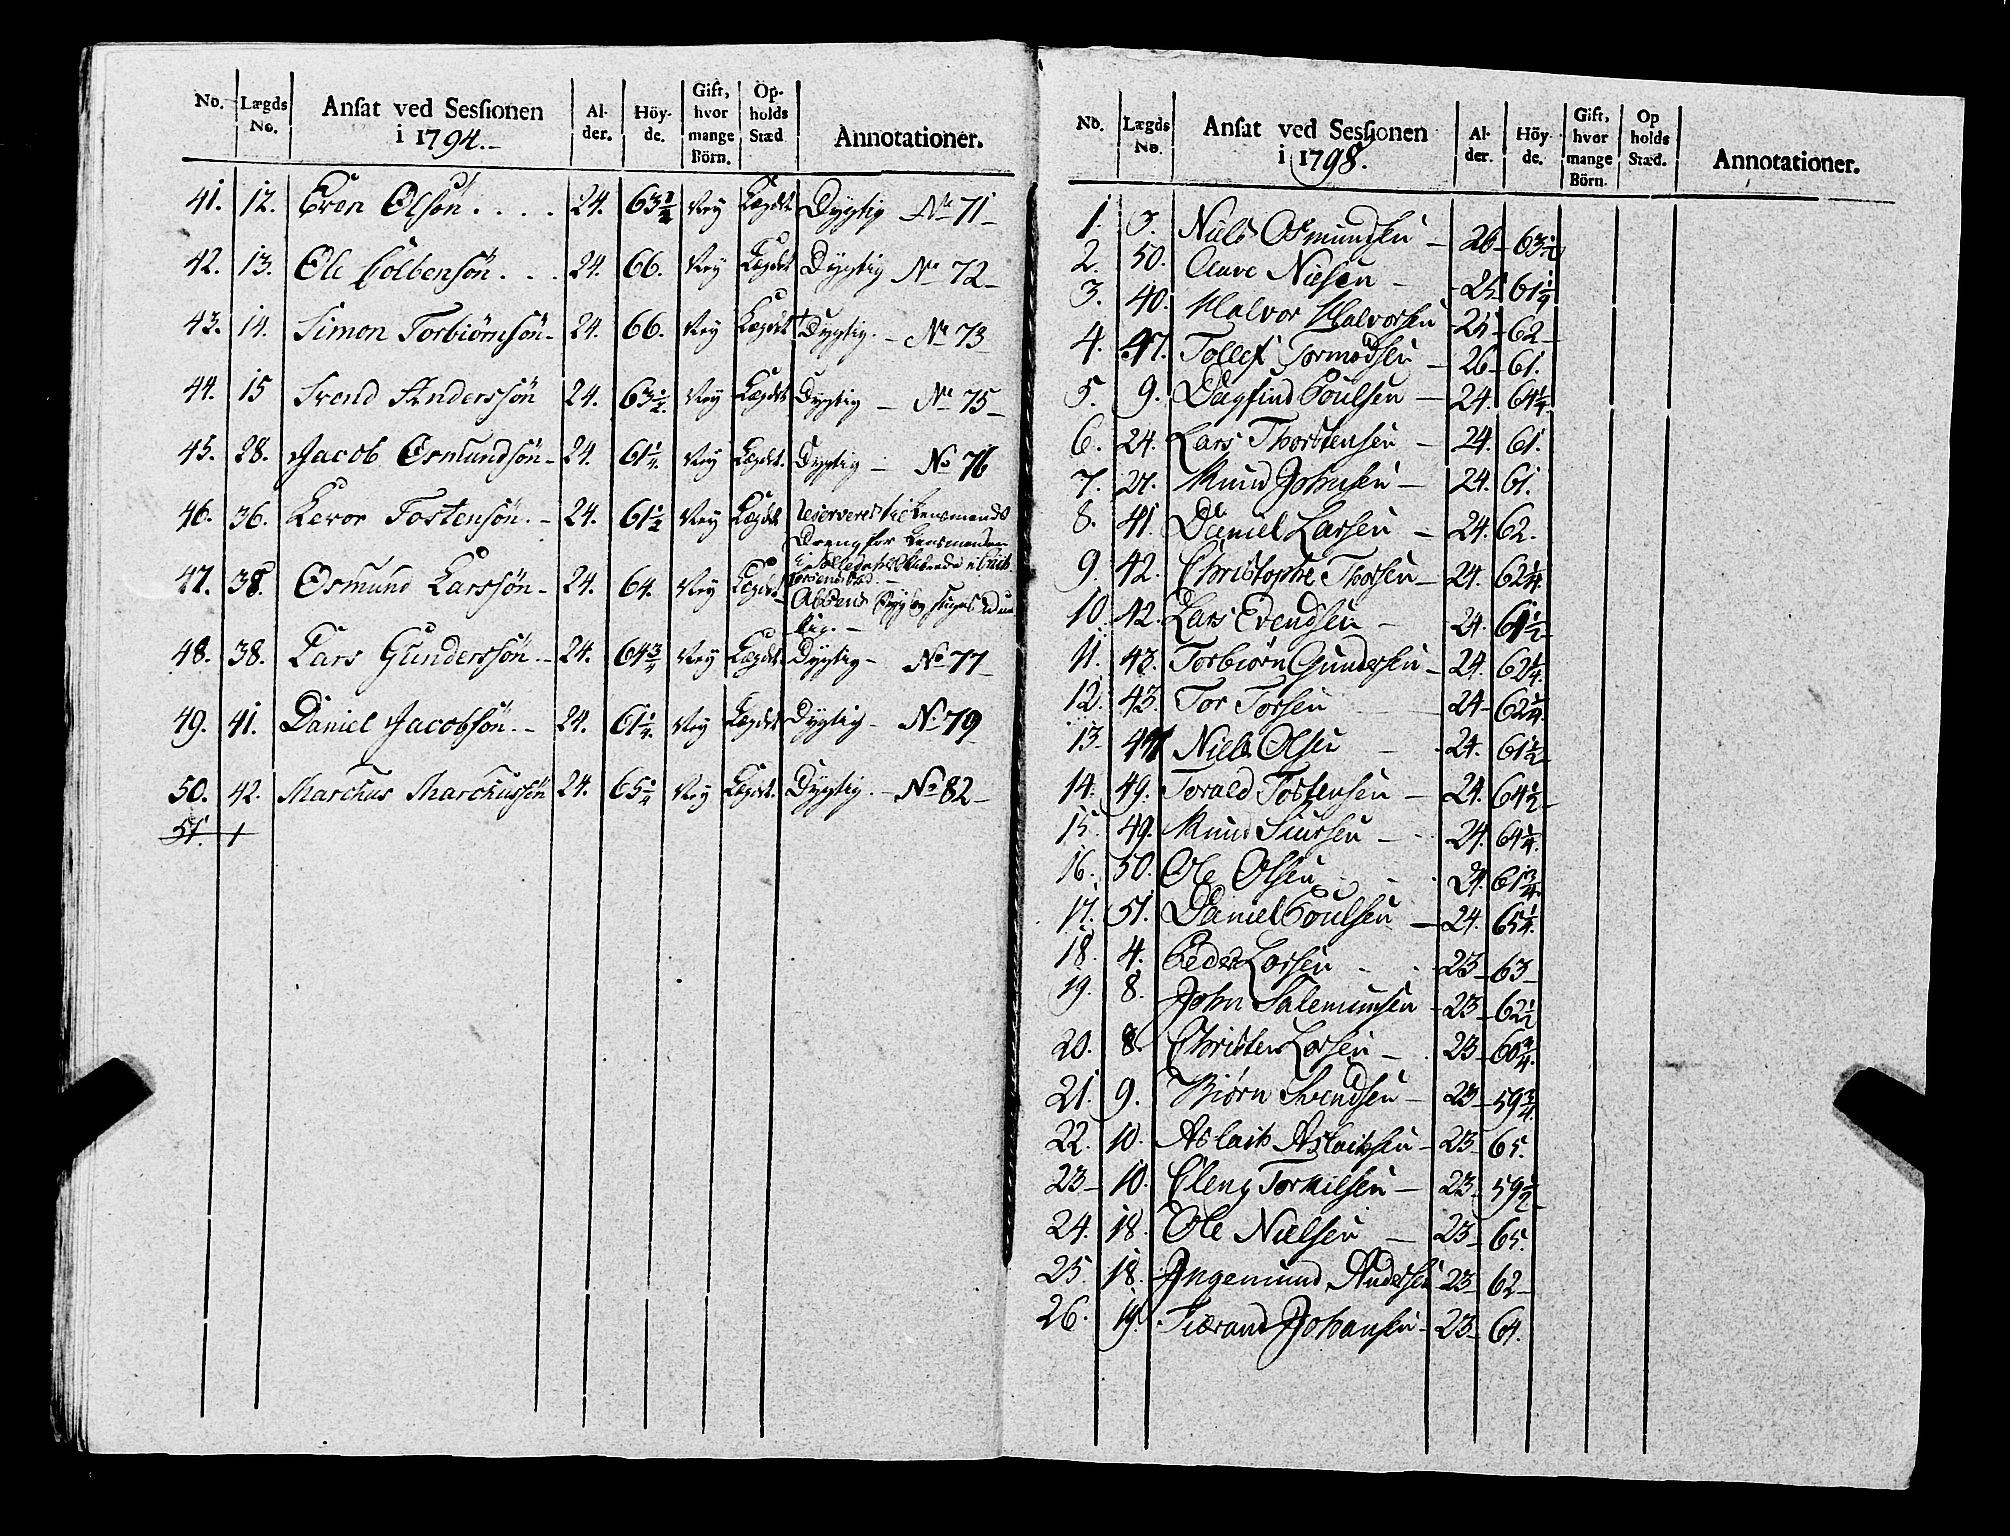 No. Lægds No. Ansat ved Sessionen i 1794.- Alder. Höyde. Gift, hvor mange Börn. Opholds Stæd Annotationer.
41. 12. Even Olsön . . . . 24. 63 1/4 Ney Lægdet Dygtig No 71-
42. 13. Ole Colbensön . . . 24. 66. Ney Lægdet Dygtig No 72-
43. 14. Simon Torbiörnsön - 24. 66. Ney Lægdet Dygtig. - No 73
44. 15 Svend Anderssön 24. 63 1/2. Ney Lægdet Dygtig - No 75-
45. 28. Jacob Osmundsön - 24. 61 1/4. Ney Lægdet. Dygtig - No 76
46. 36. Levor Tostensön. - 24. 61 1/2 Ney Lægdet Reserveres til Lensmands
Dreng for Lensmanden
47. 38. Osmund Larssön - 24. 64. Ney Lægdet
48. 38. Lars Gunderssön - 24. 64 3/4 Ney Lægdet Dygtig - No 77-
49. 41. Daniel Jacobsön. - 24. 61 1/4. Ney Lægdet Dygtig - No 79
50. 42. Marckus Marckussön 24. 65 1/4 Ney Lægdet. Dygtig. - No 82-
51. 1
No. Lægds No. Ansat ved Sessionen i 1798. Alder. Höyde. Gift, hvor mange Börn. Op holds Stæd. Annotationer.
1. 3. Niels Osmundsen - 26- 63 1/2
2. 50. Oluve Nielsen - 25 61 1/4
3. 40. Halvor Halvorsen 25- 62-
4. 47. Tollef Tormodsen - 26- 61.
5. 9. Dagfind Poulsen - 24. 64 1/4.
6. 24. Lars Thorstensen - 24. 61.
7. 27. Knud Johnsen - 24. 61.
8. 41. Daniel Larsen - 24. 62.
9. 42. Christophe Thorsen - 24. 62 1/4.
10. 42. Lars Evendsen - 24. 61 1/2-
11. 43. Torbiörn Gundersen - 24. 62 1/4.
12. 43. Tor Torsen - 24- 62 1/4.
13- 47 Niels Olsen - 24. 61 1/2-
14. 49. Torald Tostensen - 24. 64 1/2-
15. 49. Knud Siursen - 24. 64 1/4.
16. 50. Ole Olsen . . 24. 61 3/4.
17. 51. Daniel Poulsen - 24. 65 1/4.
18. 4. Peder Larsen - . 23- 63-
19. 8. John Salemunsen - 23- 62 1/2
20. 8. Christen Larsen - . 23- 60 3/4.
21. 9. Biörn Svendsen - 23- 59 3/4.
22. 10. Aslack Aslacksen - 23- 65.
23- 10. Eleng Torkilsen - 23- 59 1/2-
24. 18. Ole Nielsen - 23- 65.
25. 18. Ingemund Andersen 23- 62-
26. 19. Siærand Johansen - 23- 64.